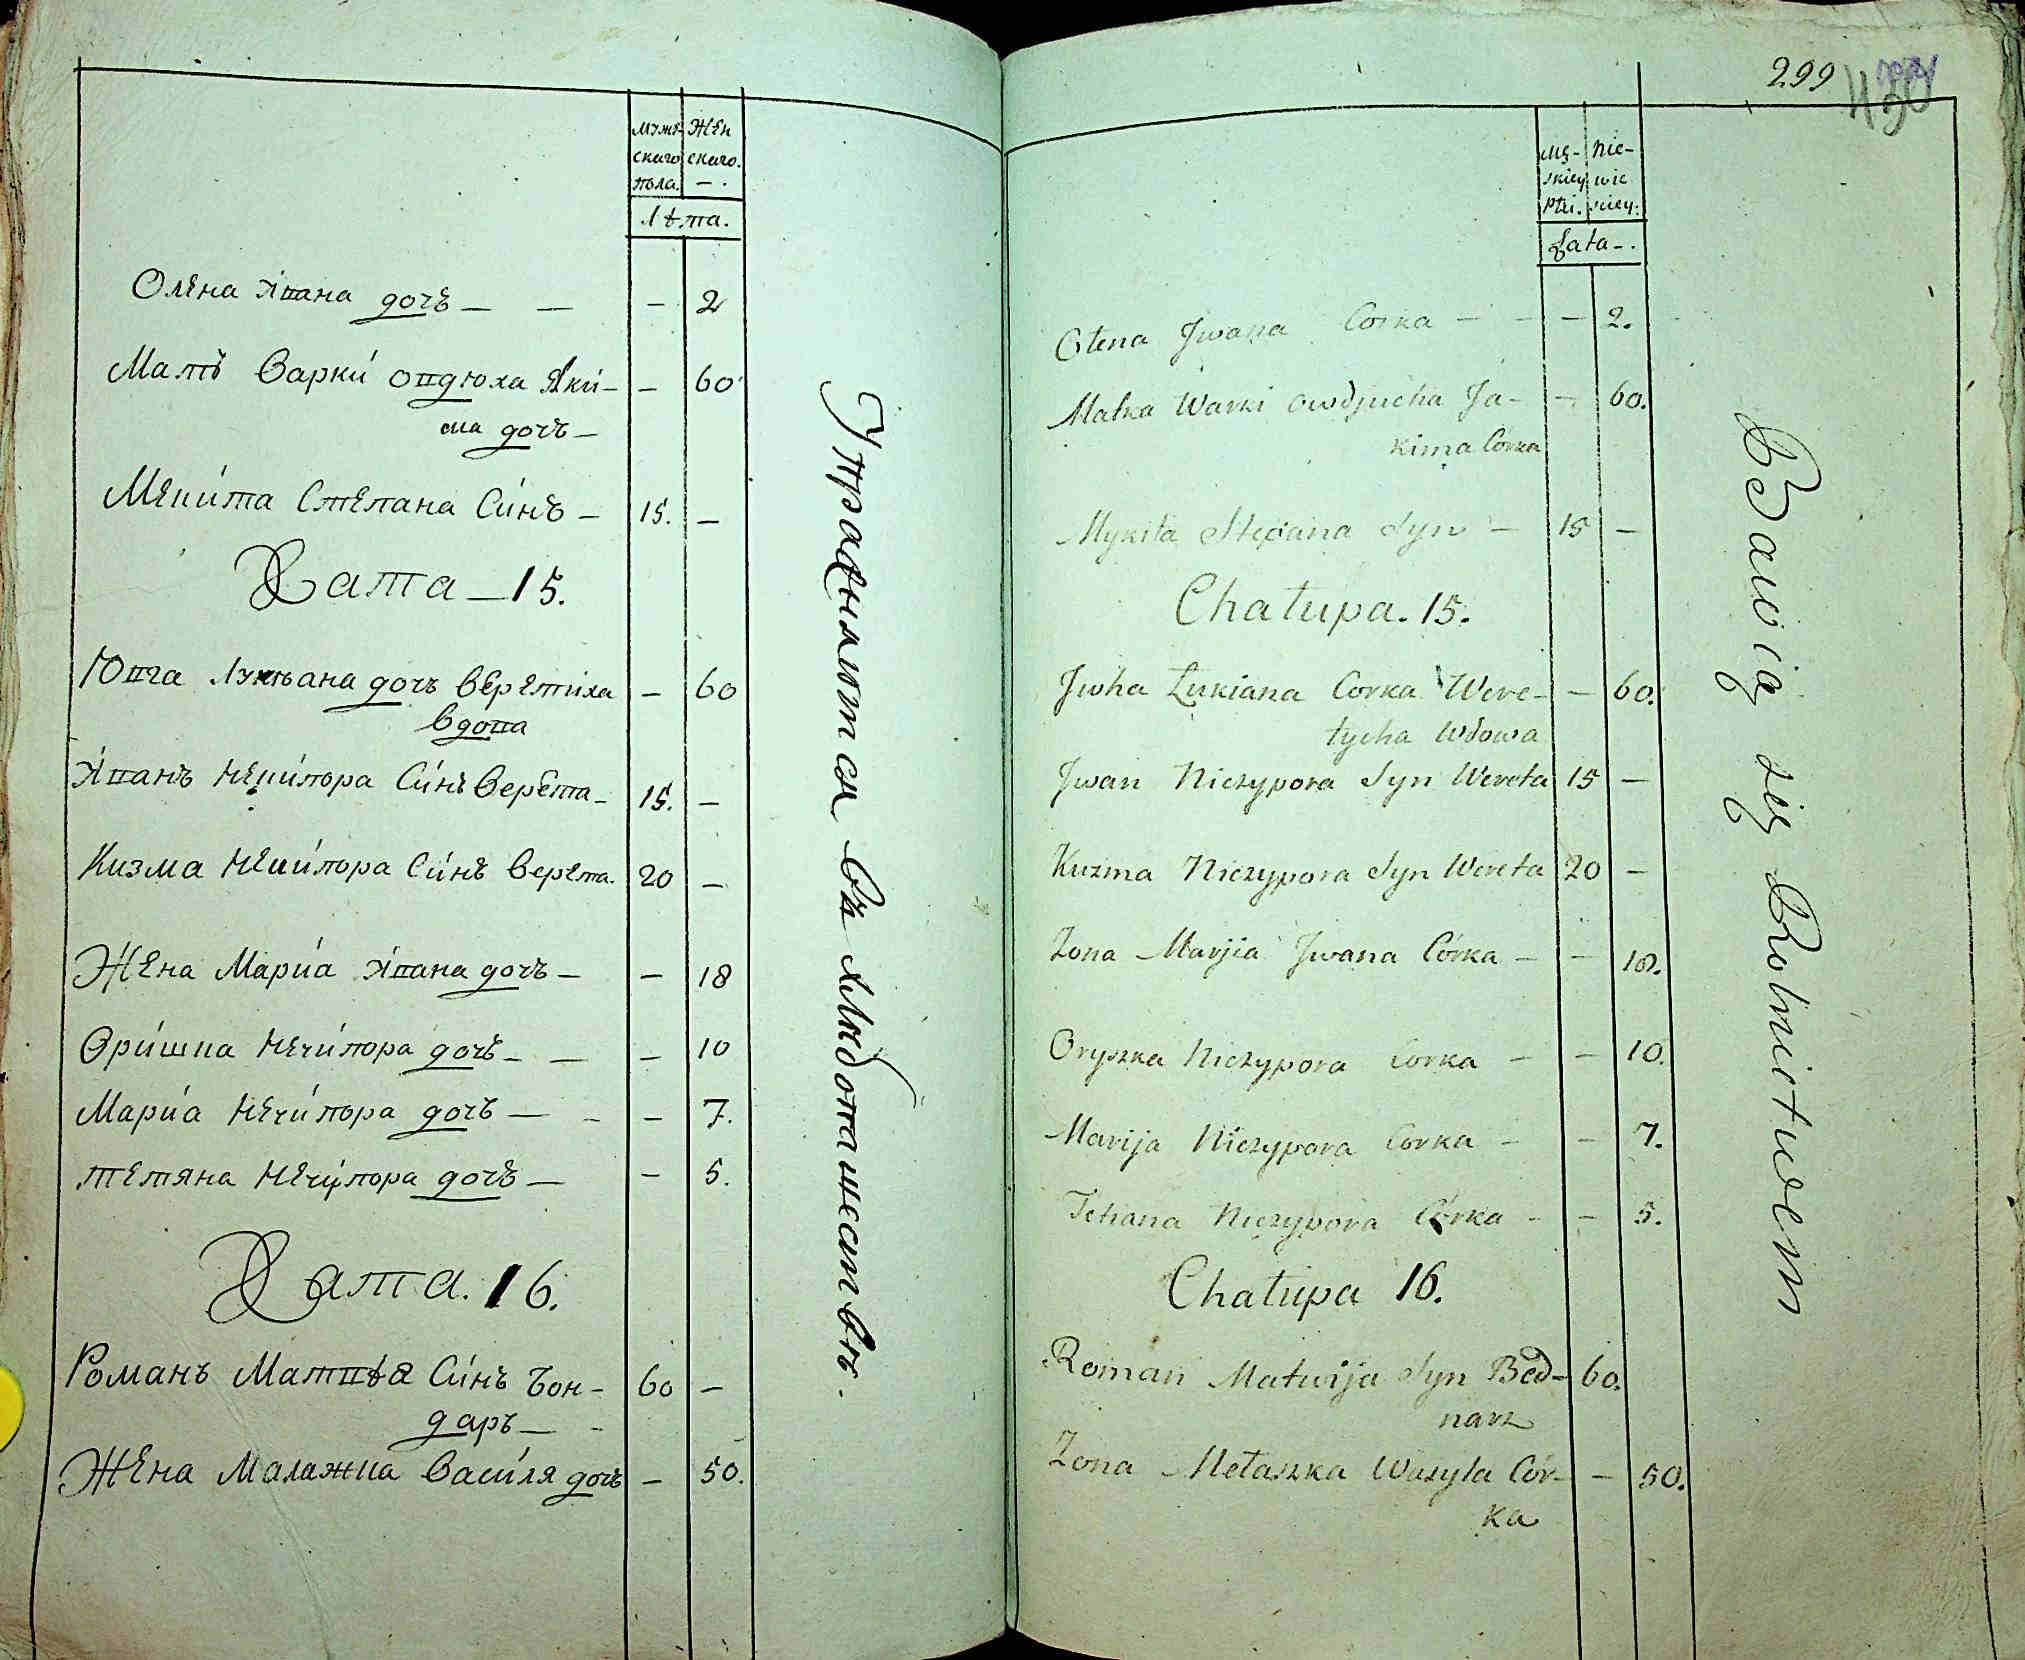 мужескаго пола. женскаго. — .
Лѣта.
Олена Ивана дочъ — — — 2
Матъ Варки овдюха Яки- — 60
ма дочъ —
Мекита Степана Синъ — 15. —
Хата — 15.
Ювга Лукъана дочъ веретиха — 60
вдова
Иванъ Нечипора Синъ Верета — 15. —
Кизма Нечипора Синъ верета. 20 —
Жена Мариа Ивана дочъ — — 18
Оришка Нечипора дочъ — — — 10
Мариа Нечипора дочъ — - — 7.
тетяна Нечипора дочъ — — 5.
Хата. 16.
Романъ Матвѣя Синъ Бон- 60 —
даръ — -
Жена Малажка Василя дочъ — 50.
Упражняются въ хлѣбопашествѣ.
299
męskiey płci. niewieściey:
Lata - .
Ołena Jwana Corka — — — 2.
Matka Warki owdjucha Ja- — 60.
kima Córka
Mykita Stepana Syn — 15 —
Chałupa. 15.
Jwha Łukiana Corka Were- — 60.
tycha Wdowa
Jwan Niczypora Syn Wereta 15 —
Kuzma Niczypora Syn Wereta 20 —
Zona Marjia Jwana Córka — — 18.
Oryszka Niczypora Corka — — 10.
Marija Niczypora Corka — — 7.
Tetiana Niczypora Córka — — 5.
Chałupa 16.
Roman Matwija Syn Bed- 60.
narz
Zona Melaszka Wasyla Cór- — 50.
ka
Bawią się Rolnictwem